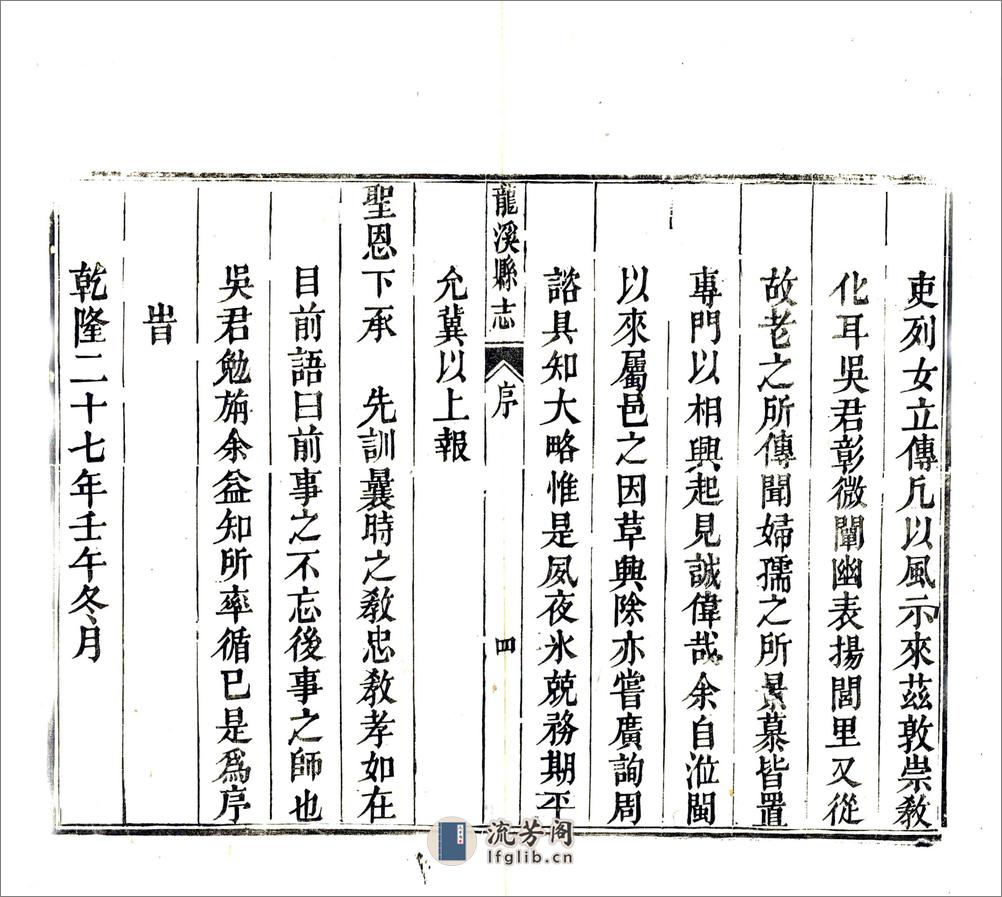 吏列女立傳凡以風示來茲敦崇敎
化耳吳君彰微闡幽表揚閭里又從
故老之所傳聞婦孺之所景慕皆置
專門以相興起見誠偉哉余自涖閩
以來屬邑之因草興除亦嘗廣詢周
諮具知大略惟是夙夜氷兢務期平
允冀以上報
龍溪縣志 序 四
聖恩下承 先訓曩時之敎忠敎孝如在
目前語曰前事之不忘後事之師也
吳君勉旃余益知所率循已是爲序
旹
乾隆二十七年壬午冬月
流芳阁
lfglib.cn